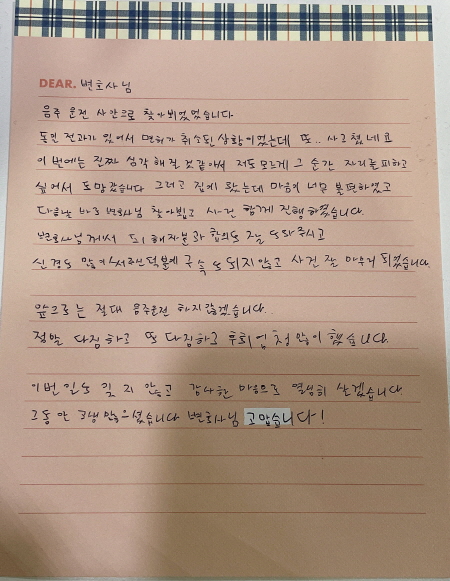 DEAR. 변호사님
음주 운전 사건으로 찾아뵈었었습니다
동일 전과가 있어서 면허가 취소된 상황이였는데 또.. 사고쳤네요
이번에는 진짜 심각해질것같아서 저도모르게 그 순간 자리를 피하고
싶어서 도망갔습니다 그러고 집에 왔는데 마음이 너무 불편하였고
다음날 바로 변호사님 찾아뵙고 사건 함께 진행하였습니다.
변호사님께서 피해자분과 합의도 잘 도와주시고
신경도 많이써주신덕분에 구속도 되지않고 사건 잘 마무리 되었습니다.
앞으로는 절대 음주운전 하지않겠습니다.
정말 다짐하고 또 다짐하고 후회 엄청 많이 했습니다.
이번 일도 잊지 않고 감사한 마음으로 열심히 살겠습니다.
그동안 고생많으셨습니다 변호사님 고맙습니다!